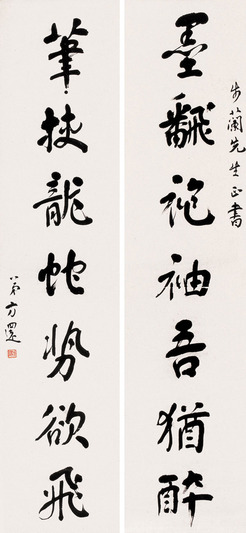 步蘭先生正書
墨飜袍袖吾猶醉
筆挾龍蛇勢欲飛
弟方還